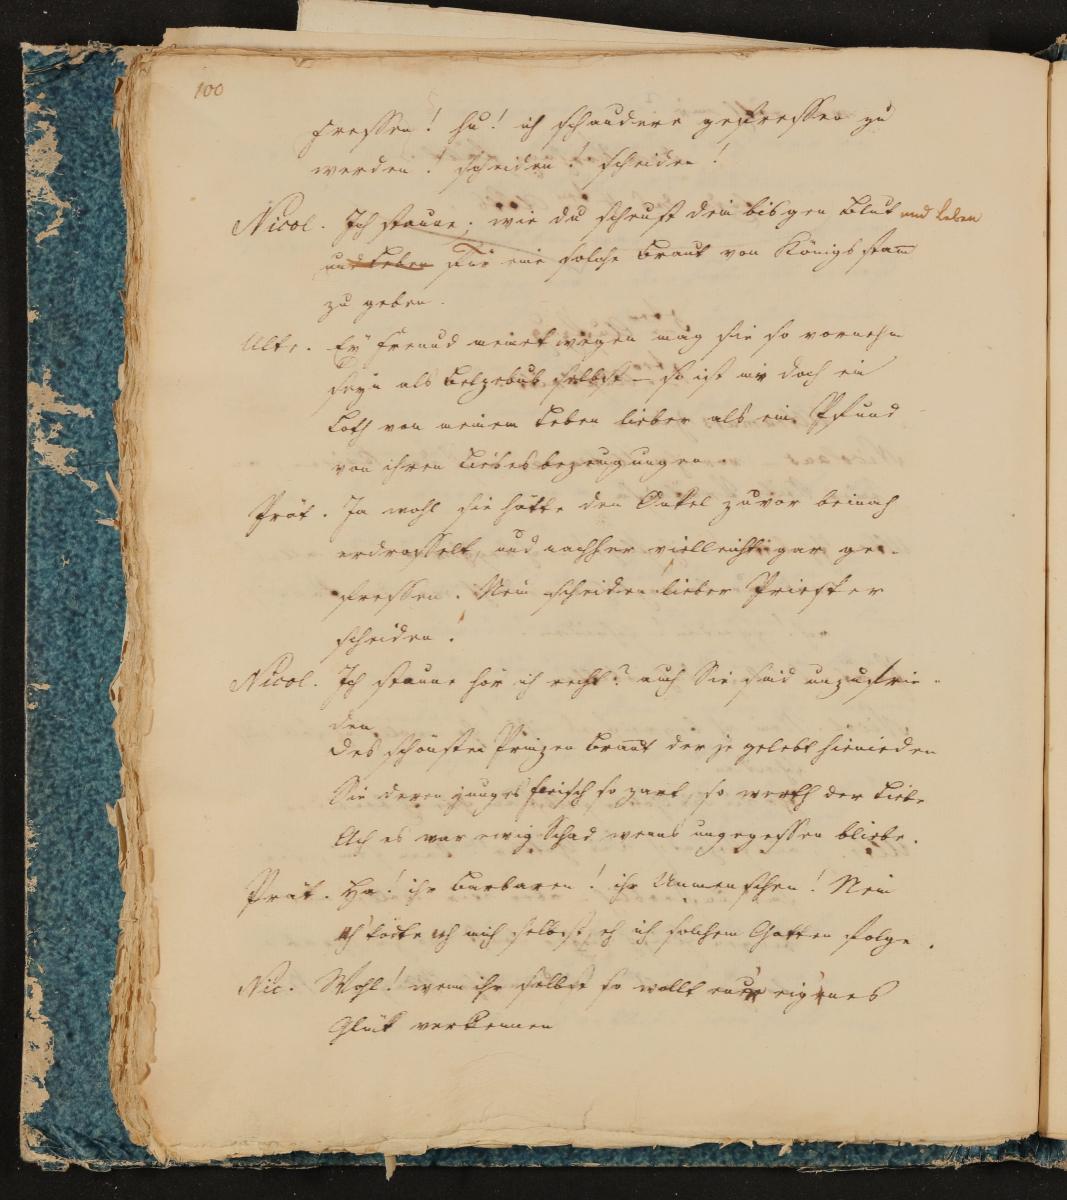 100
fressen! hu! ich schaudere gefressen zu
werden! scheiden! scheiden!
Nicol. Ich staune, wie du scheust dein bisgen Blut und Leben
und Leben für eine solche Braut von Königsstam̄
zu geben.
Alte. Ey Freund meinetwegen mag sie so vornehm
seyn als Belzebub selbst – so ist mir doch ein
Loth von meinem Leben lieber als ein Pfund
von ihren Liebesbezeugungen
Prät. Ja wohl sie hätte den Onkel zuvor beinah
erdrosselt, und nachher vielleicht gar ge-
fressen. Nein scheiden lieber Priester
scheiden.
Nicol. Ich staune hör ich recht? auch Sie sind unzufrie-
den
des schönsten Prinzen Braut der je gelebt hienieden
Sie deren junges Fleisch so zart, so werth der Liebe
Ach es war ewig Schad wenns ungegessen bliebe.
Prät. Ha! ihr Barbaren! ihr Unmenschen! Nein
ich tödte mich selbst, eh ich solchem Gatten folge.
Nic. Wohl! wenn ihr selbst so wollt euer eignes
Glück verkennen